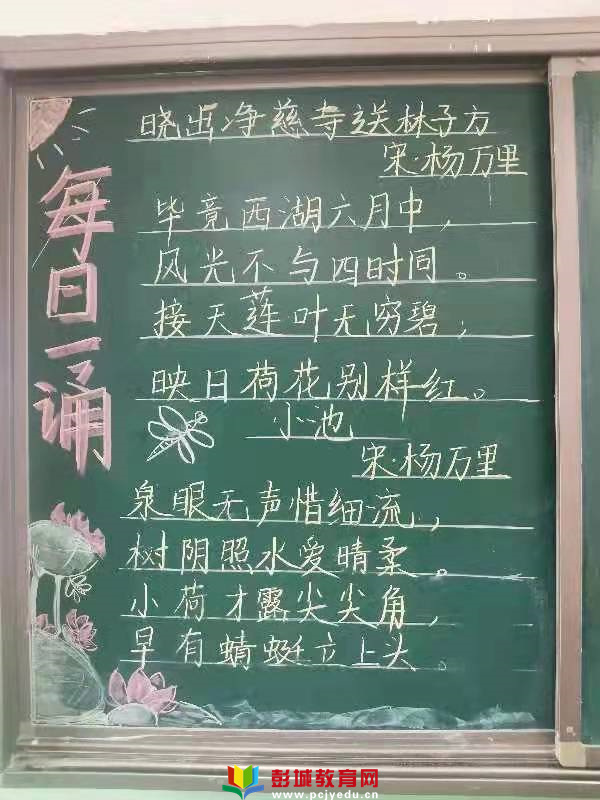 每日一诵
晓出净慈寺送林子方
宋·杨万里
毕竟西湖六月中，
风光不与四时同。
接天莲叶无穷碧，
映日荷花别样红。
小池
宋·杨万里
泉眼无声惜细流，
树阴照水爱晴柔。
小荷才露尖尖角，
早有蜻蜓立上头。
彭城教育网
www.pcjyedu.cn